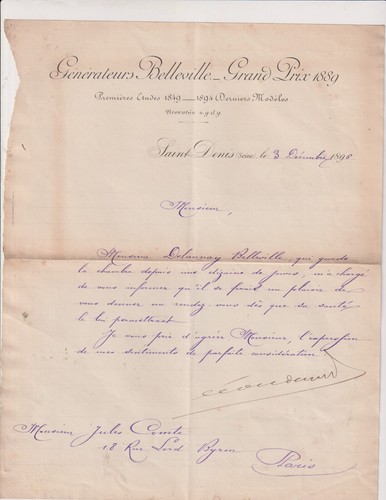 Générateurs Belleville _ Grand Prix 1889
Premières Etudes 1849 ___ 1894 Derniers Modèles
Brevetés s.g.d.g.
Saint Denis (Seine) le 3 Décembre 1896
Monsieur,
Monsieur Delaunay Belleville, qui garde
la chambre depuis une dizaine de jours, m'a chargé
de vous informer qu'il se fera un plaisir de
vous donner un rendez vous dès que sa santé
le lui permettra.
Je vous prie d'agréer Monsieur, l'expression
de mes sentiments de parfaite considération.
Monsieur Jules Comte
12 Rue Lord Byron
Paris